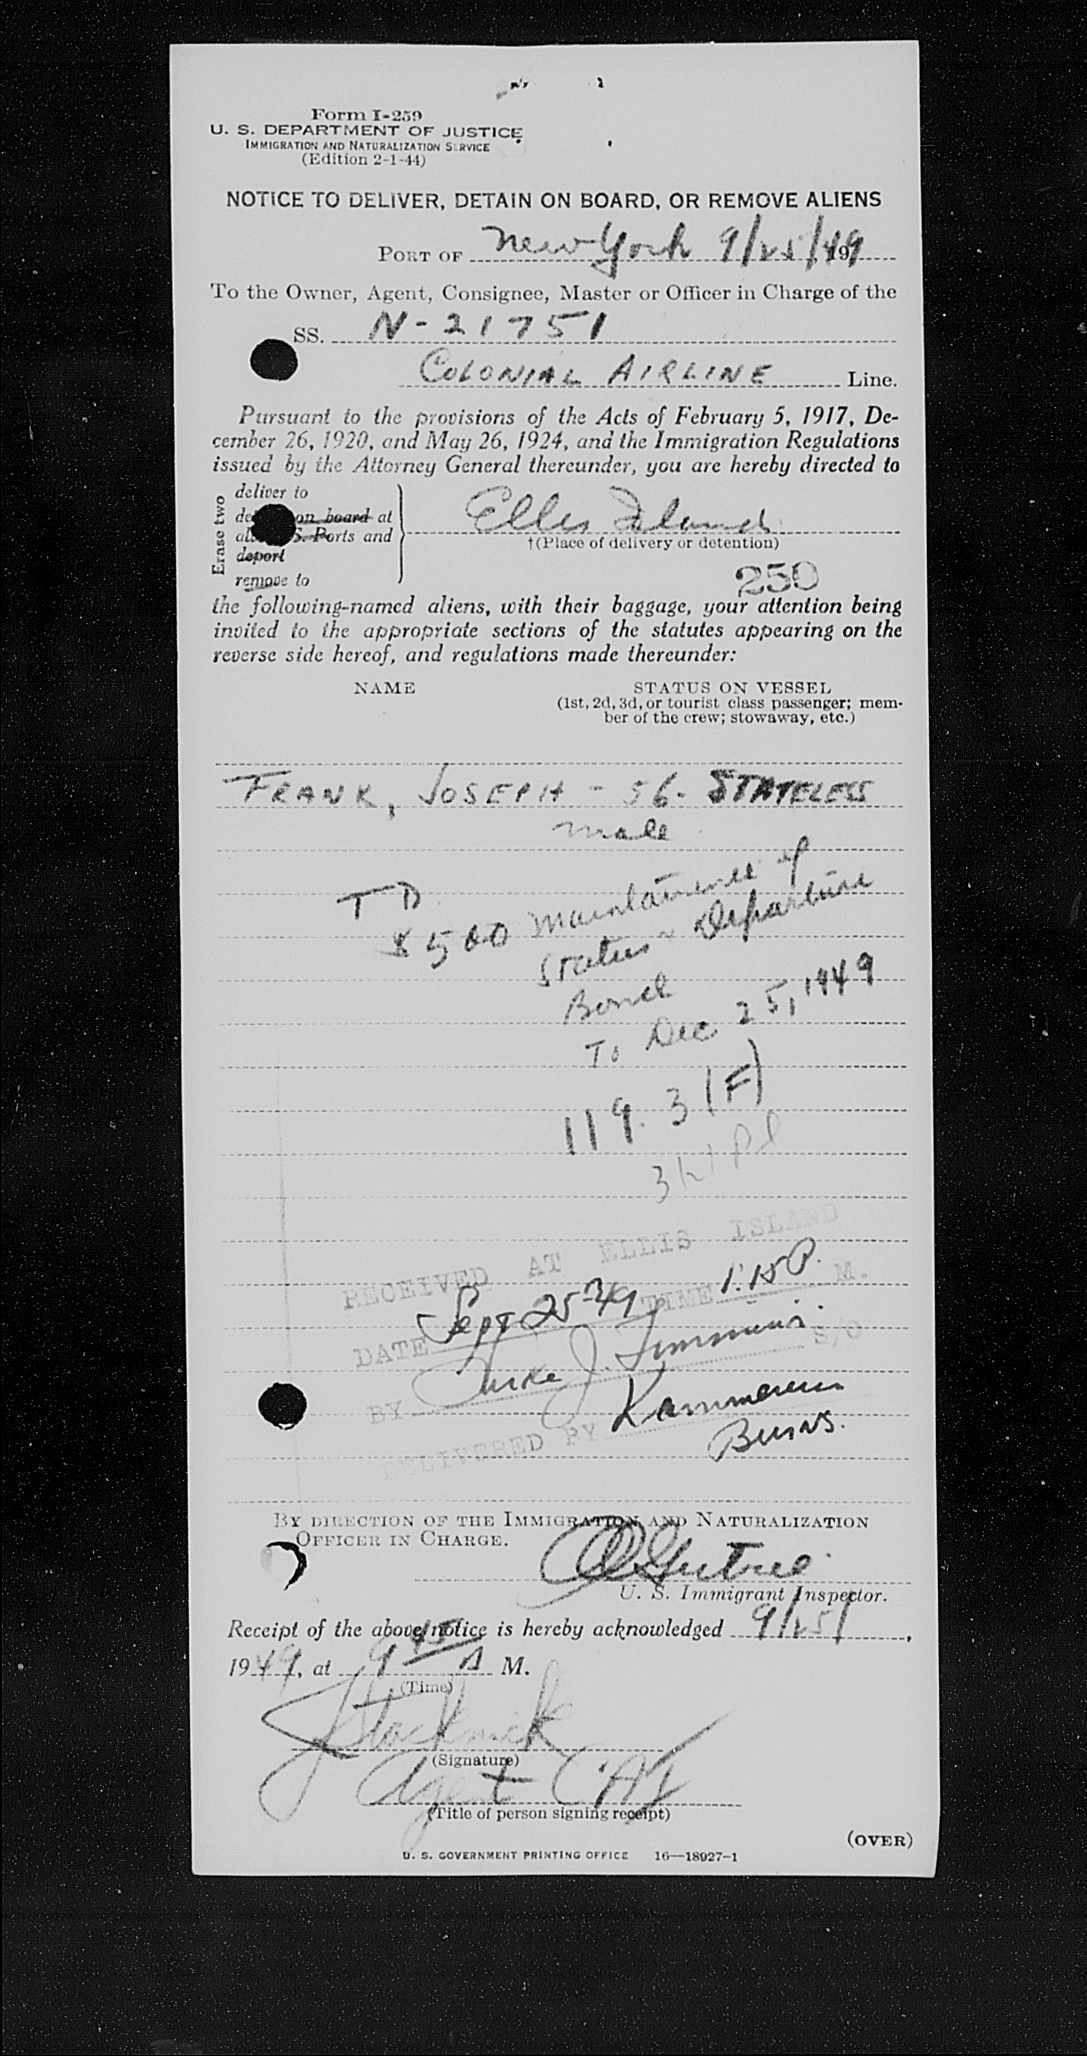 Form I-259
U. S. DEPARTMENT OF JUSTICE
IMMIGRATION AND NATURALIZATION SERVICE
(Edition 2-1-44)
NOTICE TO DELIVER, DETAIN ON BOARD, OR REMOVE ALIENS
PORT OF New York 9/25/49
To the Owner, Agent, Consignee, Master or Officer in Charge of the
SS. N-21751
COLONIAL AIRLINE Line.
Pursuant to the provisions of the Acts of February 5, 1917, De-
cember 26, 1920, and May 26, 1924, and the Immigration Regulations
issued by the Attorney General thereunder, you are hereby directed to
Erase two
deliver to
on board at
S. Ports and
deport
remove to
Ellis Island
†(Place of delivery or detention)
250
the following-named aliens, with their baggage, your attention being
invited to the appropriate sections of the statutes appearing on the
reverse side hereof, and regulations made thereunder:
NAME
STATUS ON VESSEL
(1st, 2d, 3d, or tourist class passenger; mem-
ber of the crew; stowaway, etc.)
FRANK, JOSEPH - 56 - STATELESS
male
TD
$500 Maintainence of
Status & Departure
Bond
To Dec 25, 1949
119.3(F)
RECEIVED AT ELLIS ISLAND
DATE Sept 25-49 TIME 1:15 P. M.
BY J. Timmins S/O
DELIVERED BY Kammerer
Burns.
BY DIRECTION OF THE IMMIGRATION AND NATURALIZATION
OFFICER IN CHARGE.
U. S. Immigrant Inspector.
Receipt of the above notice is hereby acknowledged 9/25/,
1949, at 9 45 A M.
(Time)
(Signature)
Agent CAI
(Title of person signing receipt)
(OVER)
U. S. GOVERNMENT PRINTING OFFICE 16—18927-1